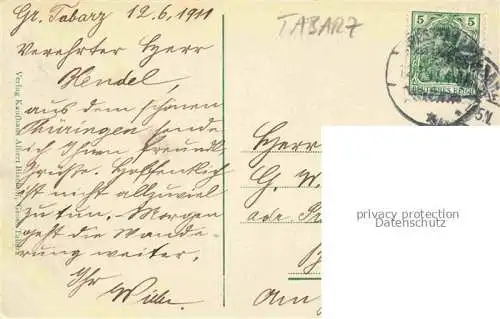 Gr. Tabarz 12.6.1911
Verehrter Herr
Hendel,
aus dem schönen
Thüringen sende
ich Ihnen freundl.
Grüsse. Hoffentlich
ist nicht allzuviel
zu tun. Morgen
geht die Wande-
rung weiter.
Ihr
Wilh.
Verlag Kaufhaus Albert
TABARZ
5 5
DEUTSCHES REICH
Herr
G. W.
adr.
Am
privacy protection
Datenschutz